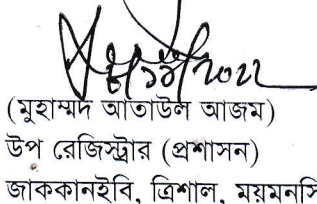 (মুহাম্মদ আতাউল আজম)
উপ রেজিস্ট্রার (প্রশাসন)
জাককানইবি, ত্রিশাল, ময়মনসি